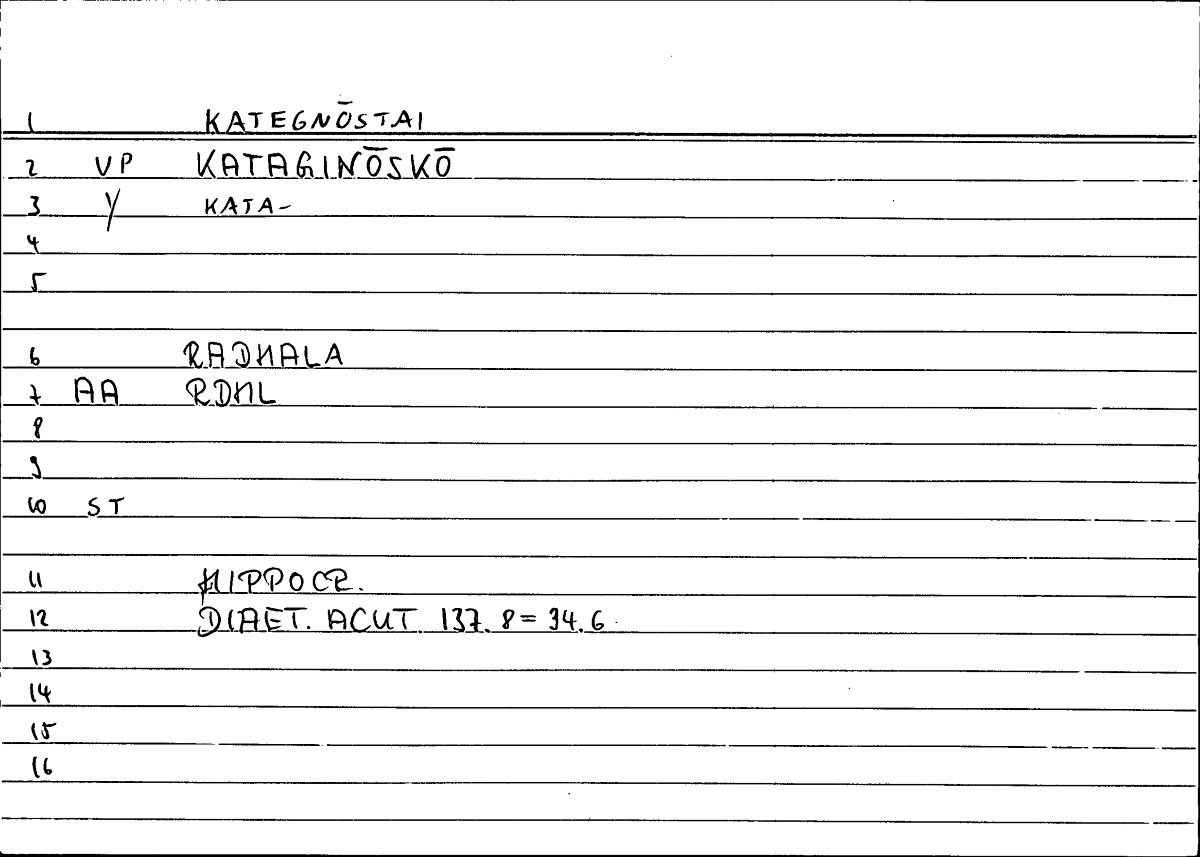 1 KATEGNŌSTAI
2 VP KATAGINŌSKŌ
3 Y KATA-
4
5
6 RADHALA
7 AA RDHL
8
9
10 ST
11 HIPPOCR.
12 DIAET. ACUT 137.8 = 34.6
13
14
15
16